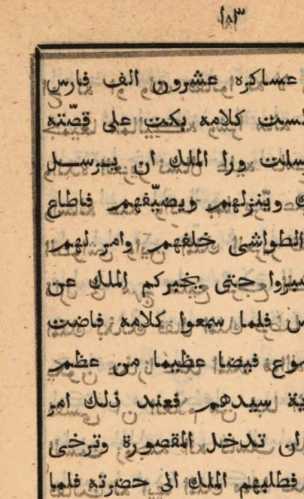 ١٨٣
عساكره عشرون الف فارس
كلامه بكت على قصّته
ورا الملك ان يرسل
وينزلهم ويضيّفهم فاطاع
الطواشى خلفهم وامر لهم
سيروا حتى يخبركم الملك عن
فلما سمعوا كلامه فاضت
فيضا عظيما من عظم
سيدهم فعند ذلك امر
ان تدخل المقصورة وترخى
فطلبهم الملك الى حضرته فلما